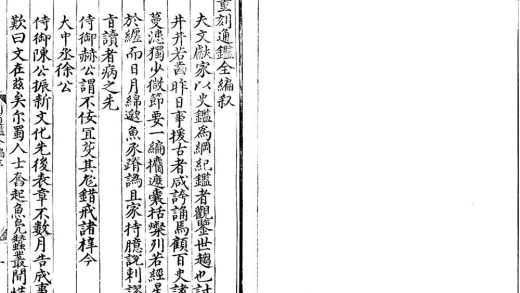 重刻通鑑全編叙
夫文獻家以史鑑為綱紀鑑者觀鑒世趨也討
井井若昨日事援古者咸誇誦馬顧百史諸
蔓漶獨少微節要一編擕遮囊括燦列若經星
於纏而日月綿邈魚豕躋譌且家持臆說剌謬
盲讀者病之先
侍御赫公謂不佞宜芟其尨錯戒諸梓今
大中丞徐公
侍御陳公振新文化先後表章不數月告成事
歎曰文在茲矣尔蜀人士奮起魚鳧蠶叢間